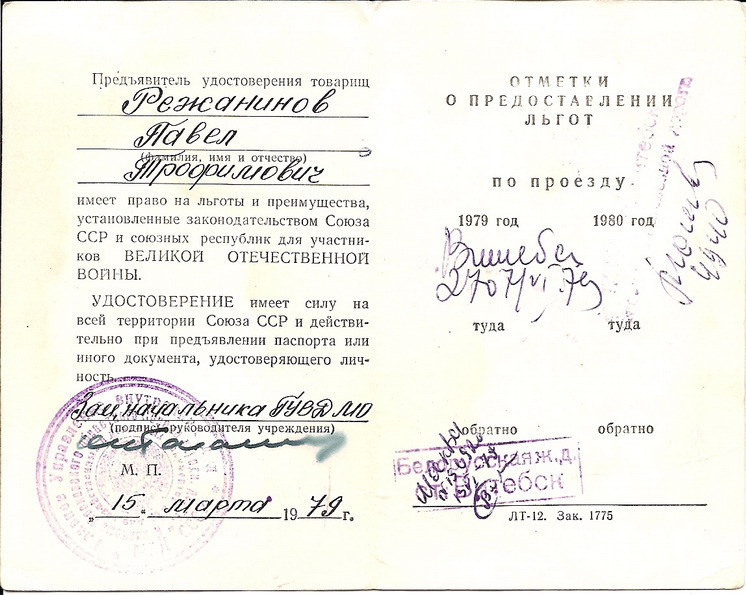 Предъявитель удостоверения товарищ
Режанинов
Павел
(фамилия, имя и отчество)
Трофимович
имеет право на льготы и преимущества,
установленные законодательством Союза
ССР и союзных республик для участни-
ков ВЕЛИКОЙ ОТЕЧЕСТВЕННОЙ
ВОЙНЫ.
УДОСТОВЕРЕНИЕ имеет силу на
всей территории Союза ССР и действи-
тельно при предъявлении паспорта или
иного документа, удостоверяющего лич-
ность.
Зам. начальника ГУВД МО
(подпись руководителя учреждения)
М. П.
„ 15 “ марта 1979 г.
ОТМЕТКИ
О ПРЕДОСТАВЛЕНИИ
ЛЬГОТ
по проезду
1979 год 1980 год
туда туда
обратно обратно
Белорусская ж. д.
Витебск
ЛТ-12. Зак. 1775